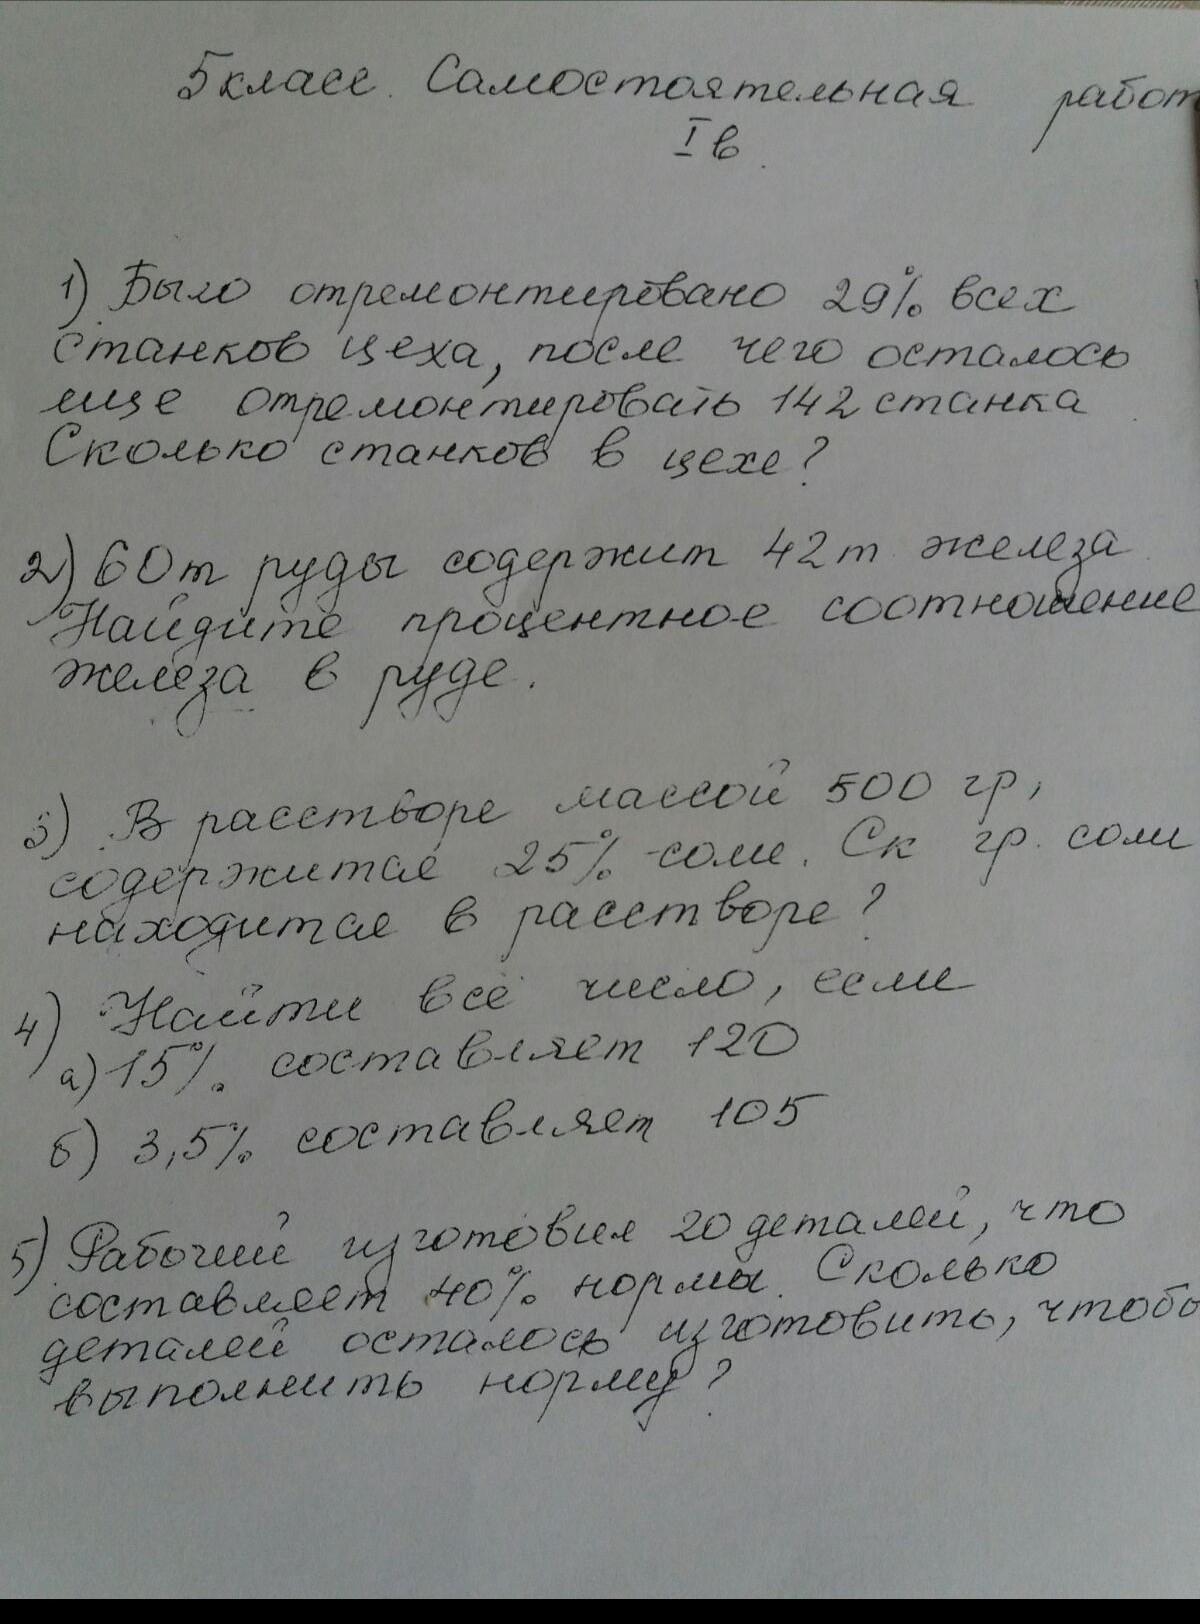 5 класс. Самостоятельная работ
I в.
1) Было отремонтировано 29% всех
станков цеха, после чего осталось
еще отремонтировать 142 станка
Сколько станков в цехе?
2) 60т руды содержит 42т железа
Найдите процентное соотношение
железа в руде.
3) В расстворе массой 500 гр,
содержится 25% соли. Ск гр. соли
находится в расстворе?
4) Найти всё число, если
а) 15% составляет 120
б) 3,5% составляет 105
5) Рабочий изготовил 20 деталей, что
составляет 40% нормы. Сколько
деталей осталось изготовить, чтобы
выполнить норму?